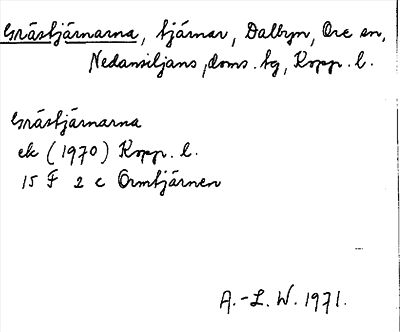 Grästjärnarna, tjärnar, Dalbyn, Ore sn,
Nedansiljans doms. tg, Kopp. l.
Grästjärnarna
ek (1970) Kopp. l.
15 F 2 c Ormtjärnen
A.-L. W. 1971.